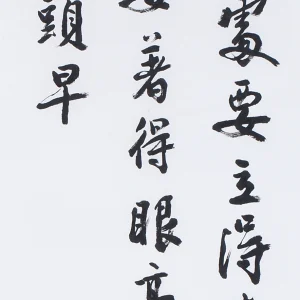 處要立得
要著得眼高
頭早